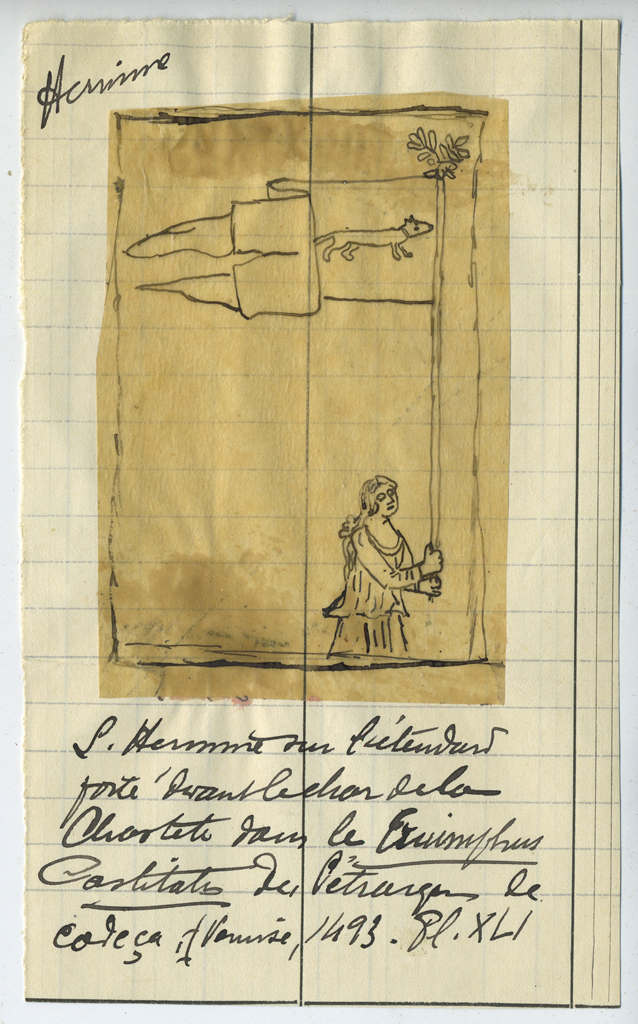 Hermine
L'Hermine sur l'étendard
porté devant le char de la
Chasteté dans le Triumphus
Castitatis de Pétrarque de
codeça, (Venise, 1493. Pl. XLI